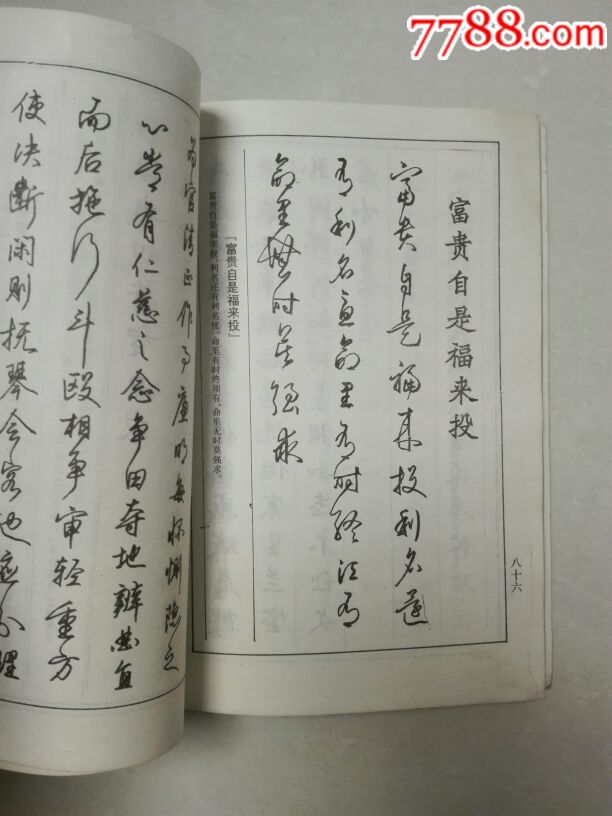 7788.com
富贵自是福来投
富贵自是福来投利名還
有利名忧命里有时终须有
命里無时莫强求
「富贵自是福来投」
富贵自是福来投、利名还有利名忧、命里有时终须有、命里无时莫强求
八十六
为官清正作事廉明每怀恻隐之
心常有仁慈之念争田夺地辨曲直
而后施行斗殴相争审轻重方
使决断闲则抚琴会客也应分理